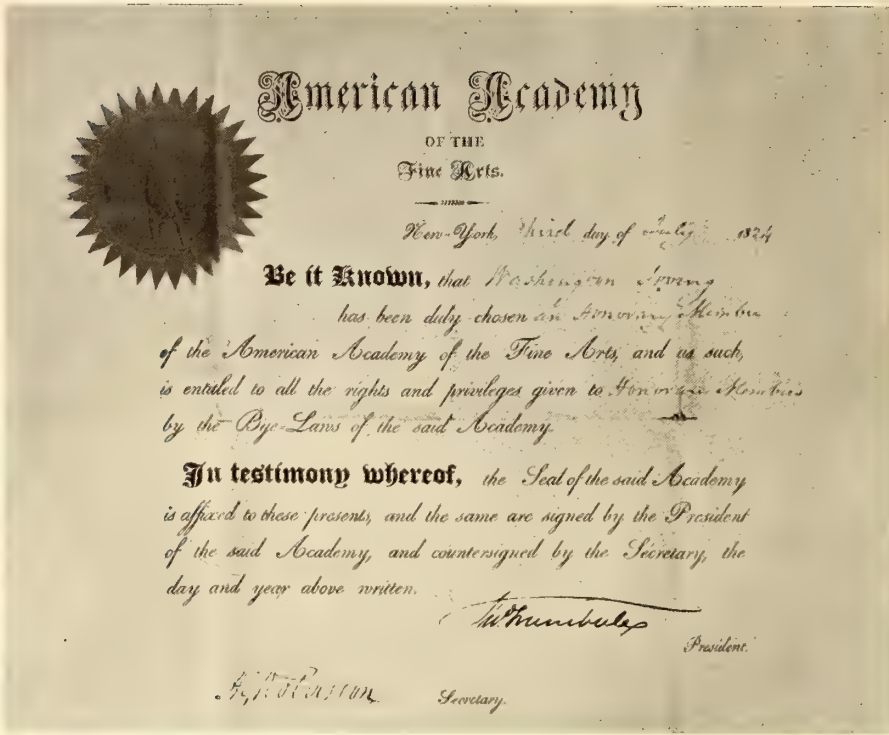 American Academy
OF THE
Fine Arts.
New-York, third day of July 1824
Be it Known, that Washington Irving
has been duly chosen an Honorary Member
of the American Academy of the Fine Arts, and as such,
is entitled to all the rights and privileges given to Honorary Members
by the Bye-Laws of the said Academy.
In testimony whereof, the Seal of the said Academy
is affixed to these presents, and the same are signed by the President
of the said Academy, and countersigned by the Secretary, the
day and year above written.
Trumbull
President.
Robertson
Secretary.